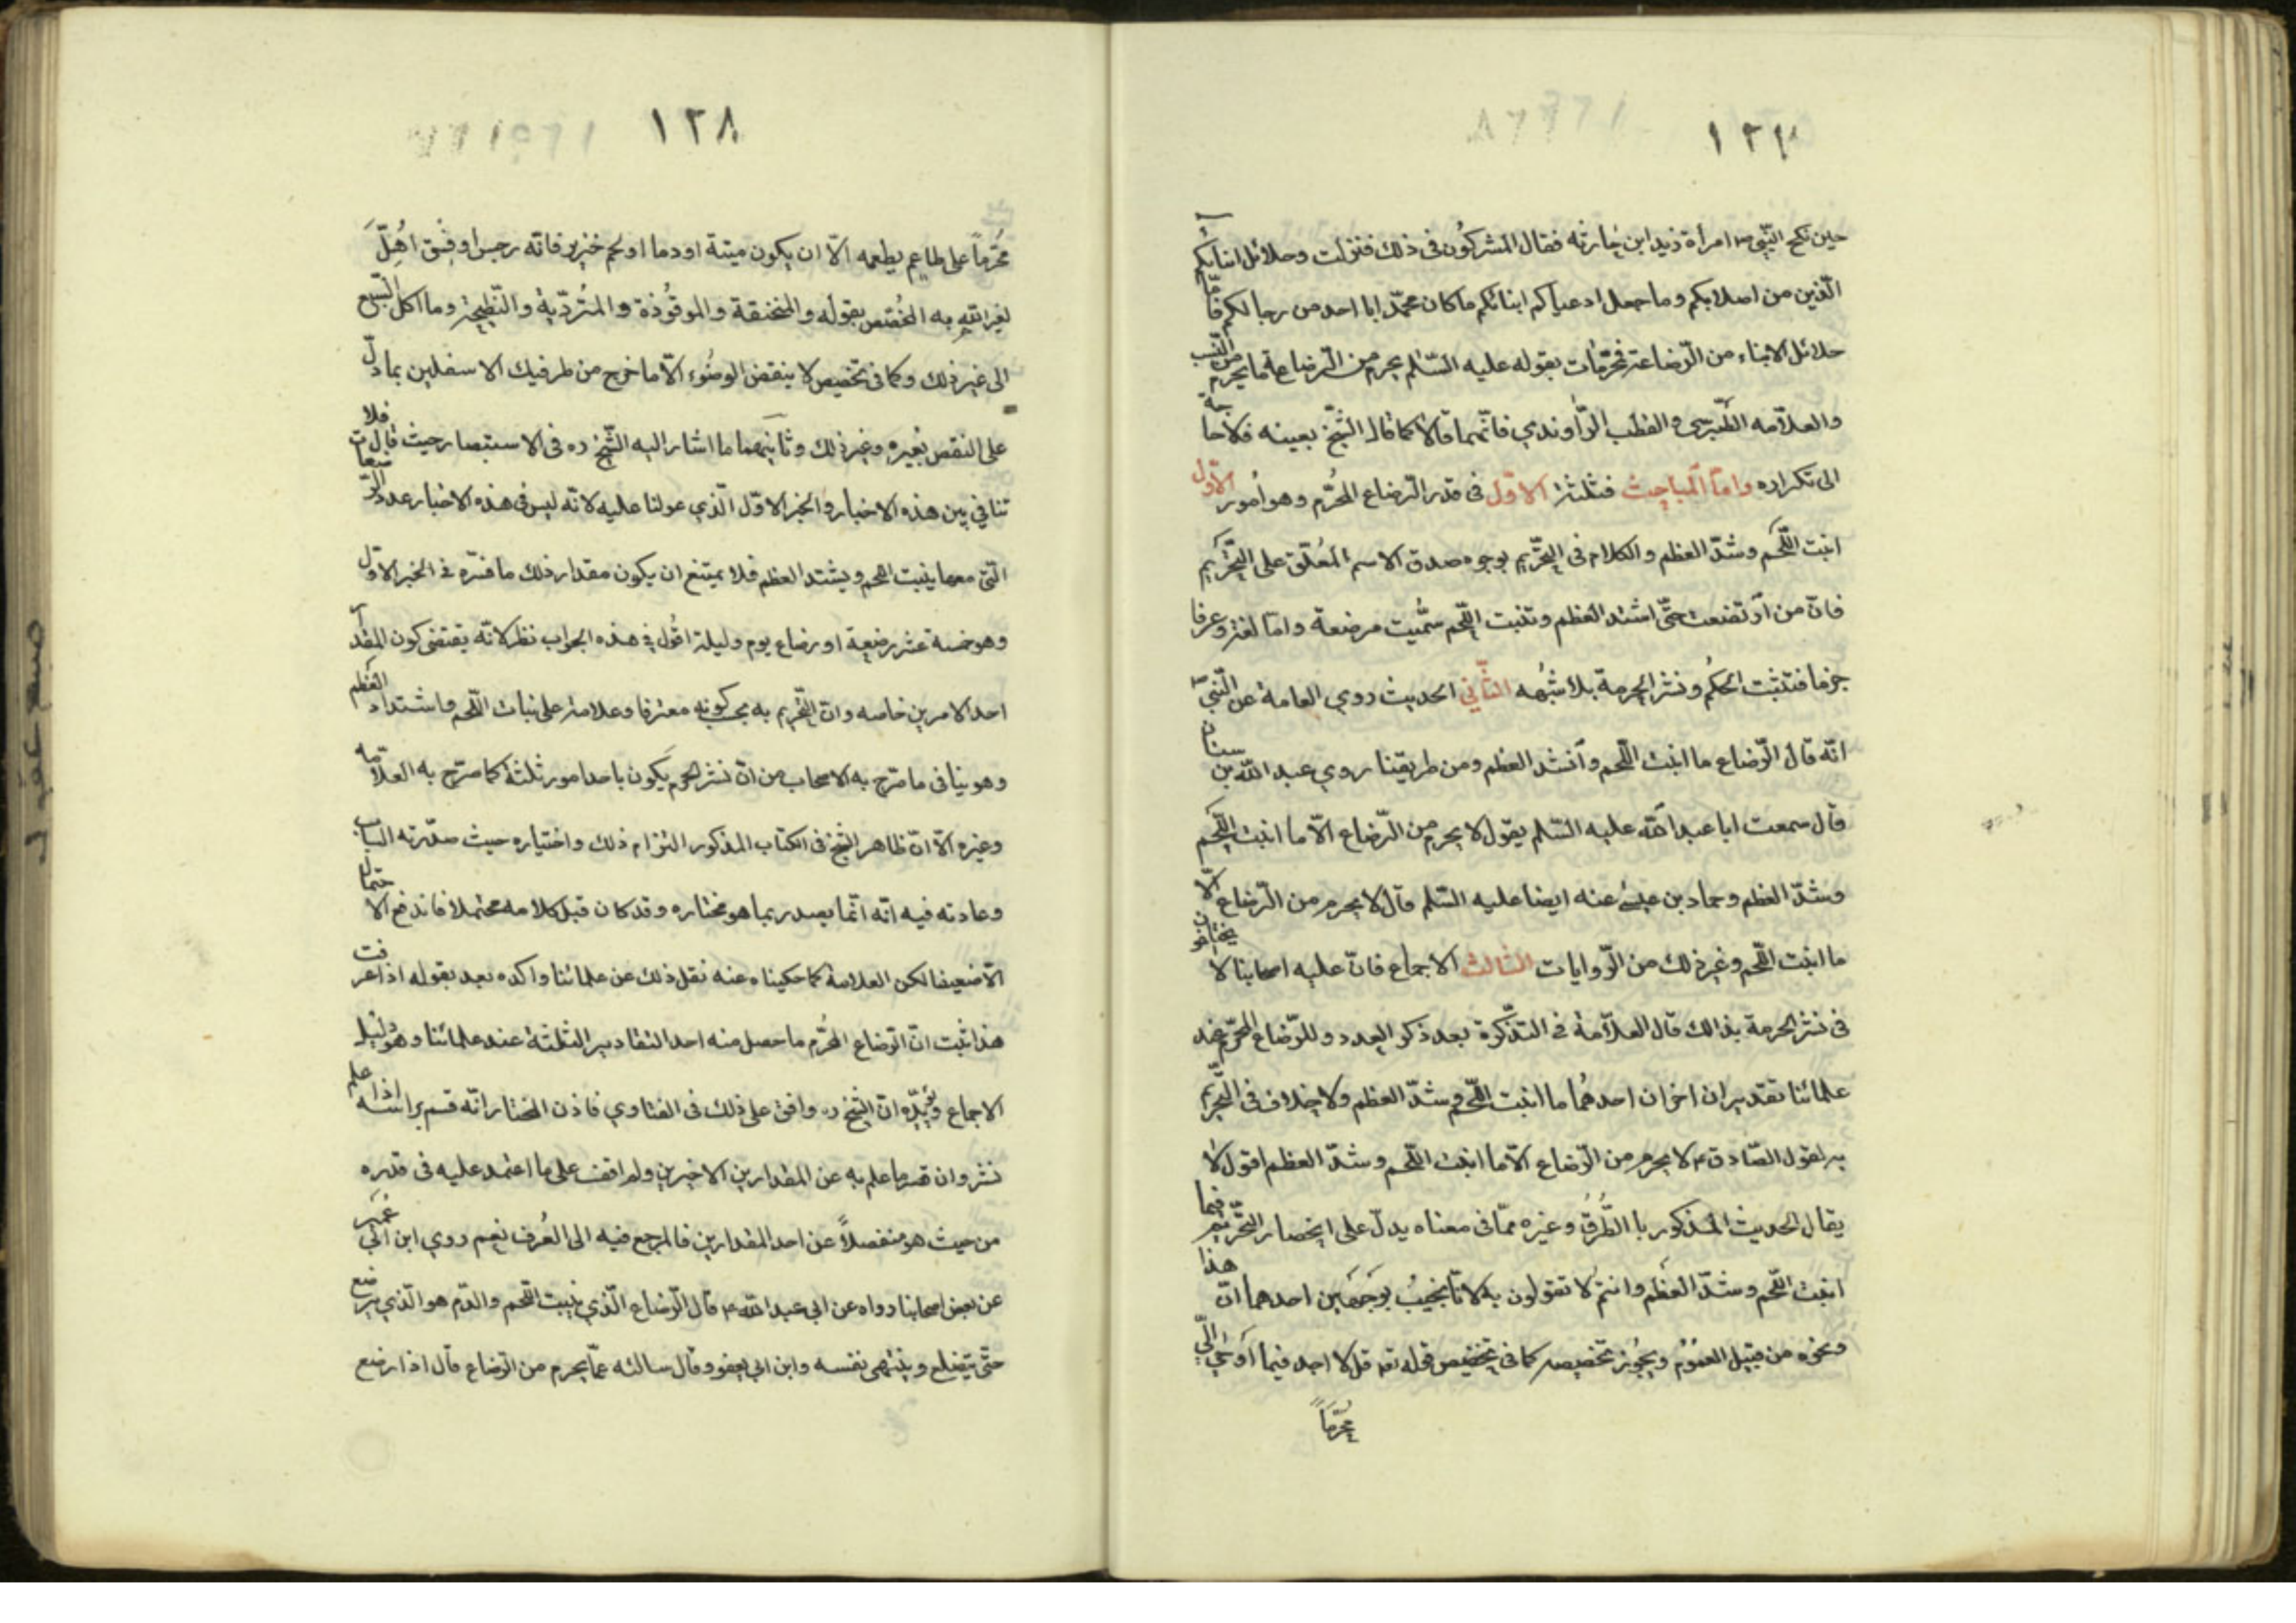 ١٢٧
حين نكح النّبي ص امرأة زيد ابن حارثه فقال المشركون فى ذلك فنزلت وحلائل ابنائكم
الّذين من اصلابكم وما جعل ادعياكم ابنائكم ما كان محمّد ابا احد من رجالكم فامّا
حلائل الابناء من الرّضاعة فمحرّمات بقوله عليه السّلم يحرم من الرّضاعة ما يحرم من النّسب
والعلاّمه الطّبرسى والقطب الرّاوندي فانّهما قالا كما قال الشّيخ بعينه فلا حاجة
الى تكراره وامّا المباحث فثلثة الاوّل فى قدر الرّضاع المحرّم وهو امور الاوّل
انبت اللّحم وشدّ العظم والكلام فى التّحريم بوجوه صدق الاسم المعلّق على التّحريم
فانّ من ارتضعت حتّى اشتد العظم وتنبت اللّحم سمّيت مرضعة وامّا لغة وعرفا
جزما فتثبت الحكم ونشر الحرمة بلا شبهه الثّاني الحديث روي العامة عن النّبيّ ص
انّه قال الرّضاع ما انبت اللّحم وآنشد العظم ومن طريقنا روي عبد اللّه بن سنان
قال سمعت ابا عبد اللّه عليه السّلم يقول لا يحرم من الرّضاع الاّ ما انبت اللّحم
وشدّ العظم وحماد بن عيسى عنه ايضا عليه السّلم قال لا يحرم من الرّضاع الاّ
ما انبت اللّحم وغير ذلك من الرّوايات الثالث الاجماع فانّ عليه اصحابنا لا يختلفون
فى نشر الحرمة بذالك قال العلاّمة فى التّذكرة بعد ذكر العدد وللرّضاع المحرّم عند
علمائنا تقديران اخران احدهما ما انبت اللّحم وشدّ العظم ولا خلاف فى التّحريم
به لقول الصّادق ع لا يحرم من الرّضاع الاّ ما انبت اللّحم وشدّ العظم اقول لا
يقال الحديث المذكور با الطّرق وغيره ممّا فى معناه يدلّ على انحصار التّحريم فيما
انبت اللّحم وشدّ العظم وانتم لا تقولون به لانّا نجيب بوجهين احدهما انّ هذا
ونحوه من قبيل العموم ويجوز تخصيصه كما فى تخصيص قوله تع قل لا اجد فيما اوحي الىّ
محرّماً
١٢٨
محرّماً على طاعم يطعمه الاّ ان يكون ميتة او دما او لحم خنزير فانّه رجس او فسق اهلّ
لغير اللّه به المختص بقوله والمنخنقة والموقوذة والمتردّية والنّطيحة وما اكل السّبع
الى غير ذلك وكما فى تخصيص لا ينقض الوضوء الاّ ما خرج من طرفيك الاسفلين بما دلّ
على النقض بغيره وغير ذلك وثانيهما ما اشار اليه الشّيخ ره فى الاستبصار حيث قال فلا
تنافي بين هذه الاخبار والخبر الاوّل الّذي عولنا عليه لانّه ليس فى هذه الاخبار عدد الرّضعات
الّتى معها ينبت اللحم ويشتد العظم فلا يمتنع ان يكون مقدار ذلك ما فسّره فى الخبر الاوّل
وهو خمسة عشر رضعة او رضاع يوم وليلة اقول فى هذه الجواب نظر لانّه يقتضى كون المقدار
احد الامرين خاصه وانّ التّحريم به بحسب كونه معرفا وعلامة على نبات اللّحم واشتداد العظم
وهو ينافى ما صّرح به الاصحاب من انّ نشر الحرم يكون باحد امور ثلثة كما صّرح به العلاّمه
وغيره الاّ انّ ظاهر الشّيخ فى الكتاب المذكور التزام ذلك واختياره حيث صدّر به الباب
وعادته فيه انّه انّما يصدر بما هو مختاره وقد كان قبل كلامه محتملا فاندفع الاحتمال
الاّ ضعيفا لكن العلامة كما حكيناه عنه نقل ذلك عن علمائنا واكده بعد بقوله اذا عرفت
هذا ثبت انّ الرّضاع المحرّم ما حصل منه احد التقادير الثلثة عند علمائنا وهو دليل
الاجماع ويؤيّده انّ الشّيخ ره وافق على ذلك فى الفتاوي فاذن المختار انّه قسم براسه اذا علم
نشر وان قدرما علم به عن المقدارين الاخيرين ولم اقف على ما اعتمد عليه فى قدره
من حيث هو منفصلاً عن احد المقدارين فالمرجع فيه الى العرف نعم روي ابن ابي عمير
عن بعض اصحابنا رواه عن ابي عبد اللّه ع قال الرّضاع الّذي ينبت اللّحم والدّم هو الّذي يرضع
حتّى يتضلع وينتهى نفسه وابن ابي يعفور قال سالته عمّا يحرم من الرّضاع قال اذا رضع